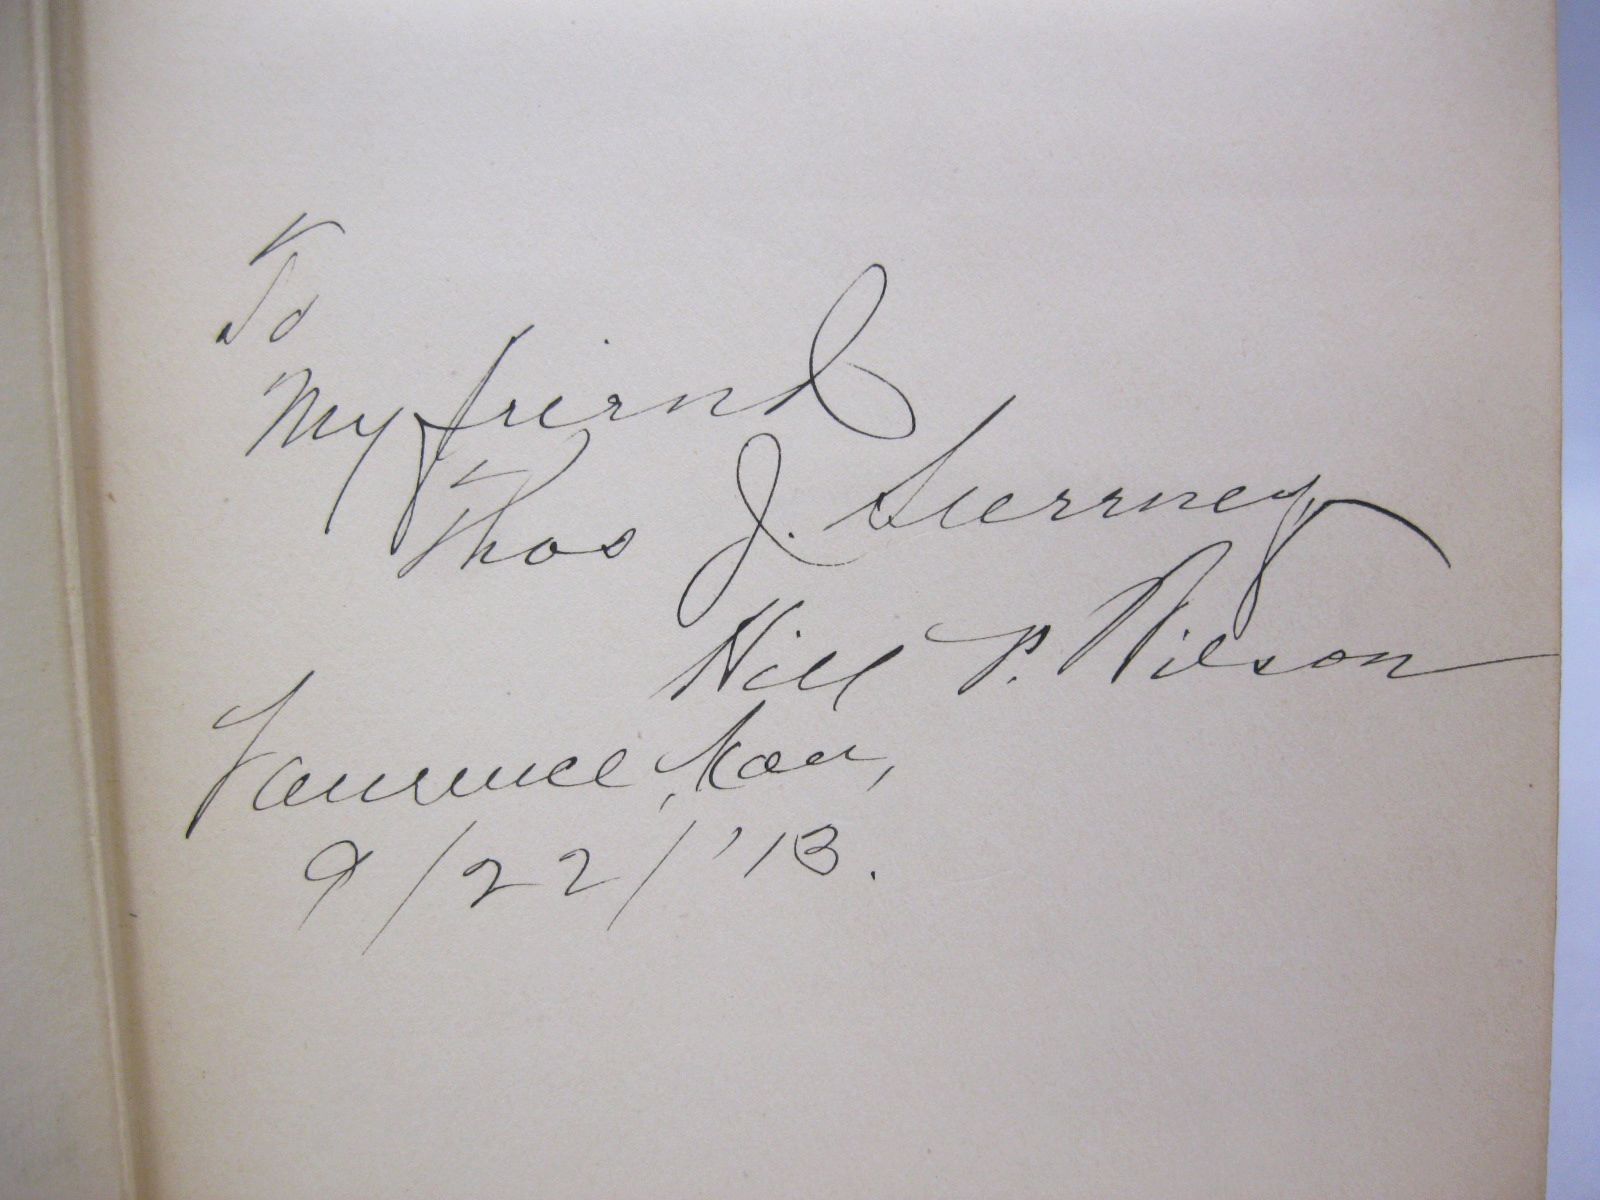 To
My friend
Thos J.
Hill P. Wilson
Lawrence, Kan,
9/22/'13.